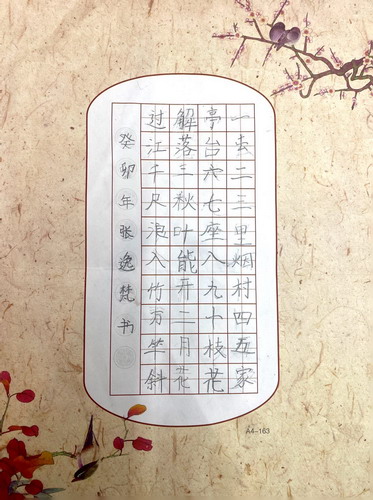 一去二三里烟村四五家
亭台六七座八九十枝花
解落三秋叶能开二月花
过江千尺浪入竹万竿斜
癸卯年张逸梵书
A4-163